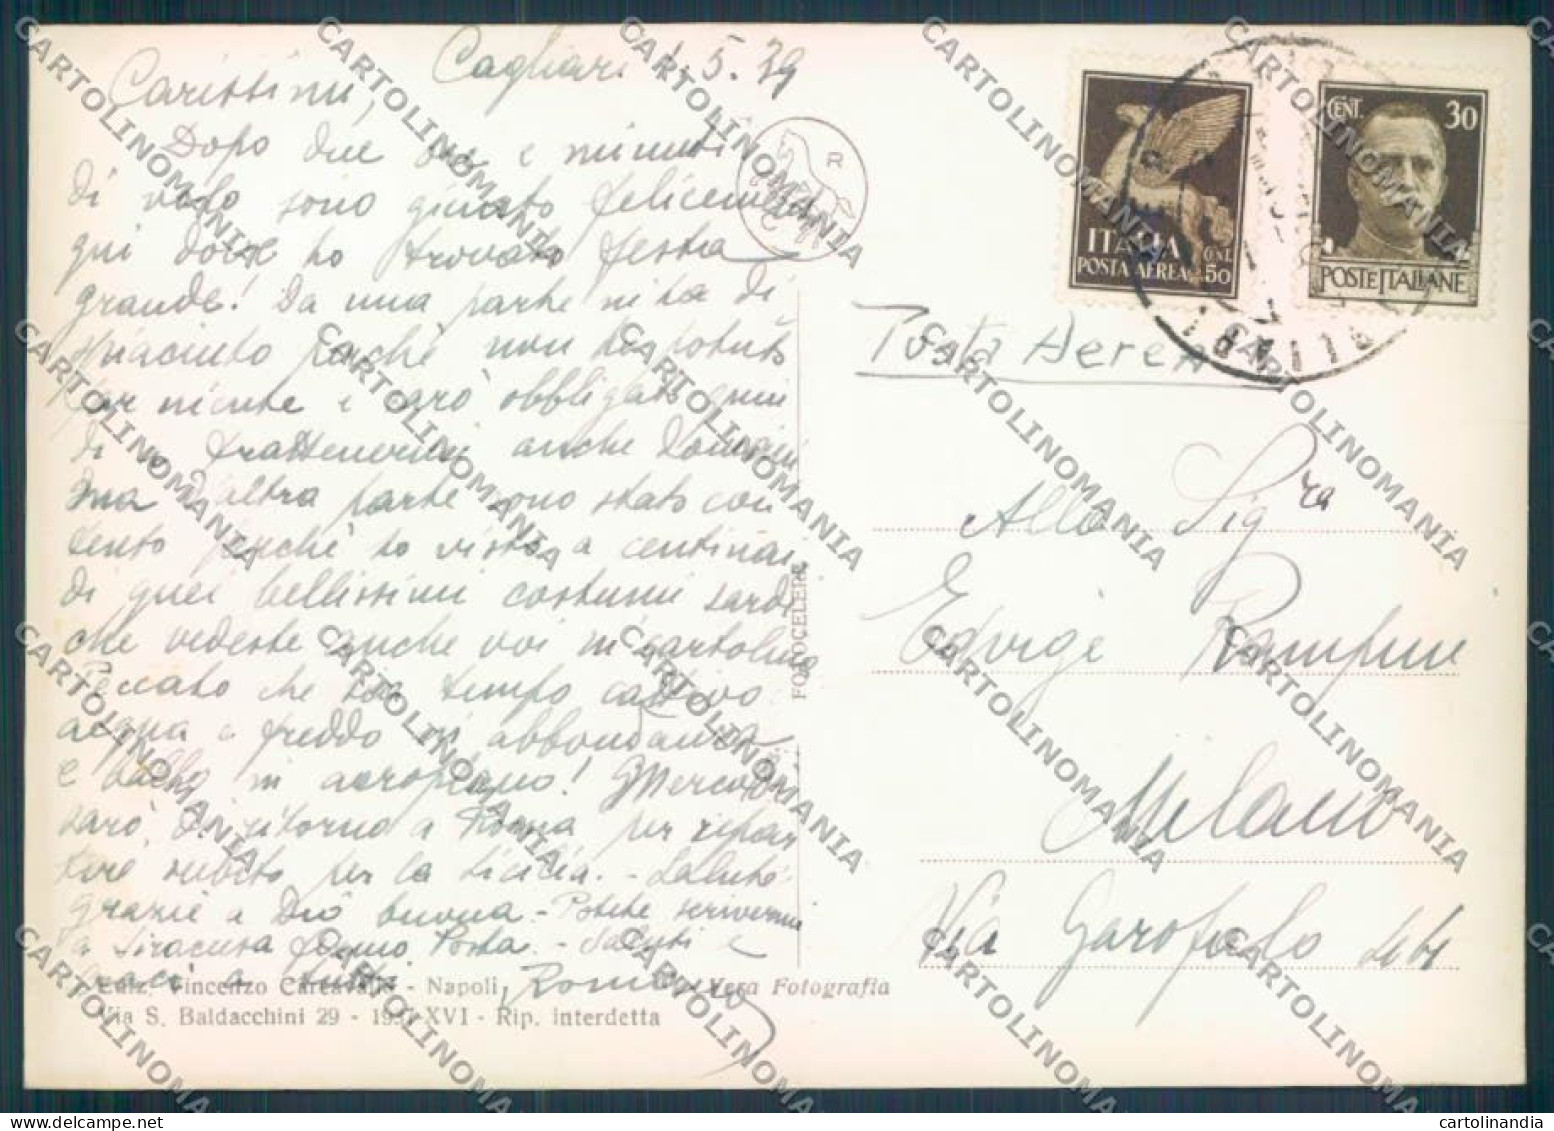 Cagliari 1.5.39
Carissimi,
Dopo due ore e minuti
di volo sono giunto felicemente
qui dove ho trovato festa
grande! Da una parte mi ha di
spiaciuto perchè non ho potuto
far niente e sarò obbligato quin
di a trattenermi anche domani
ma d'altra parte sono stato con
tento perchè ho visto a centinaia
di quei bellissimi costumi sardi
che vedeste anche voi in cartolina
Peccato che sia tempo cattivo
acqua e freddo in abbondanza
e ballo in aeroplano! Mercoledì
sarò di ritorno a Roma per ripar
tire subito per la Sicilia. - Salute
grazie a Dio buona - Potete scrivermi
a Siracusa fermo Posta. - Saluti e
baci a tutti
Romano
Ediz. Vincenzo Carcavallo - Napoli
Vera Fotografia
Via S. Baldacchini 29 - 1937-XVI - Rip. interdetta
FOTOCELERE
R
ITALIA
POSTA AEREA
CENT. 50
CENT. 30
POSTE ITALIANE
CAGLIARI
Posta Aerea
Alla Sig.ra
Edvige
Milano
Via Garofalo
CARTOLINOMANIA
cartolinandia